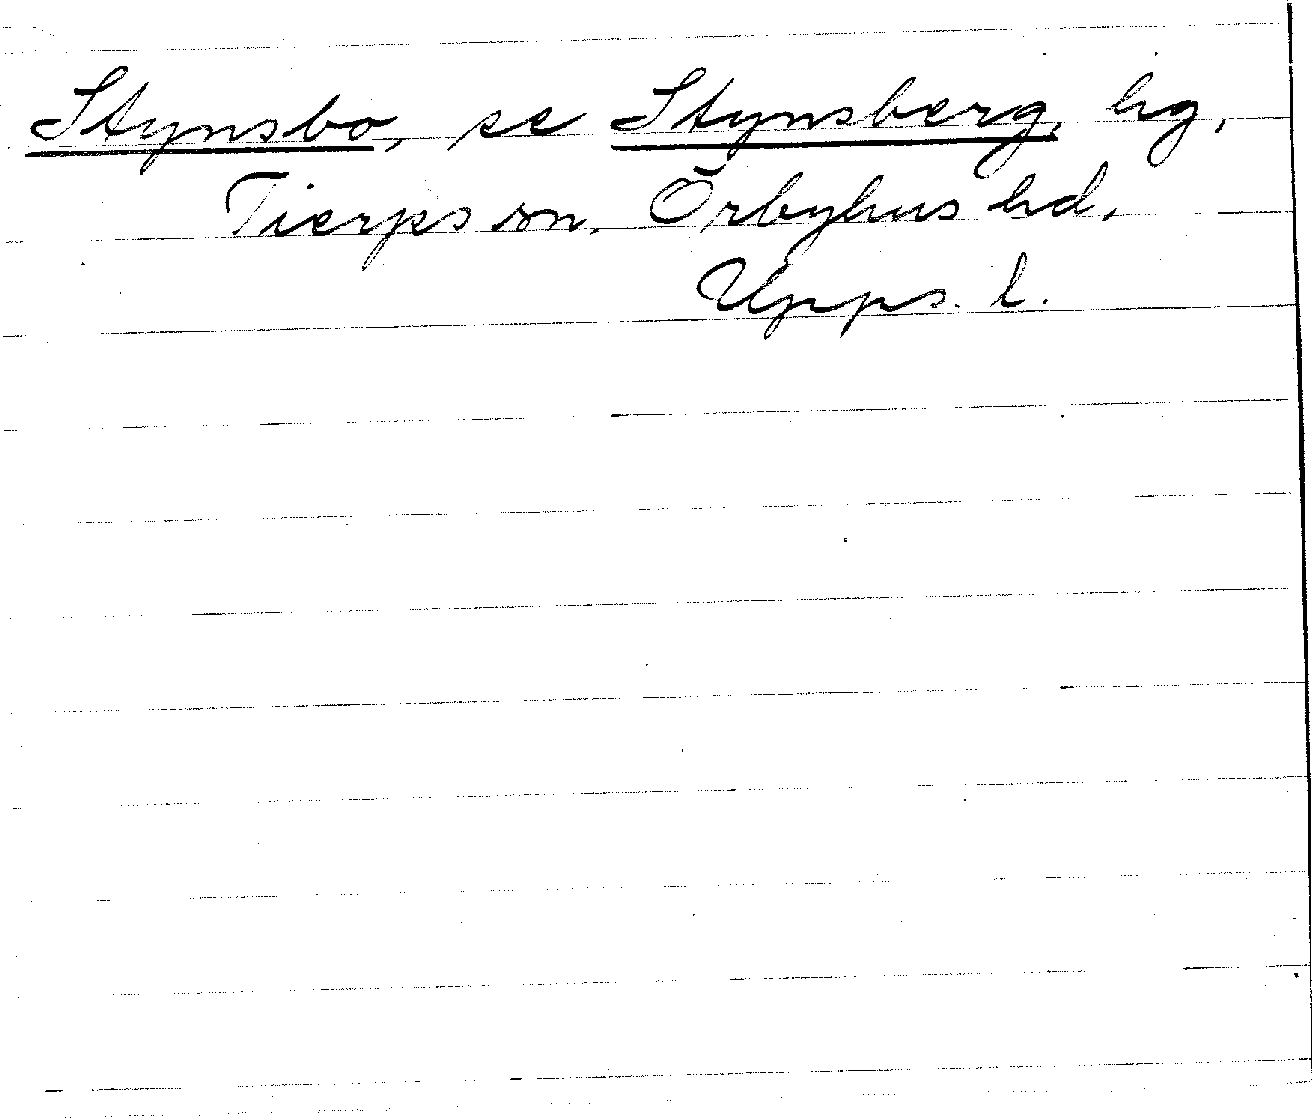 Stynsbo, se Stynsberg, hg,
Tierps sn. Örbyhus hd.
Upps. l.